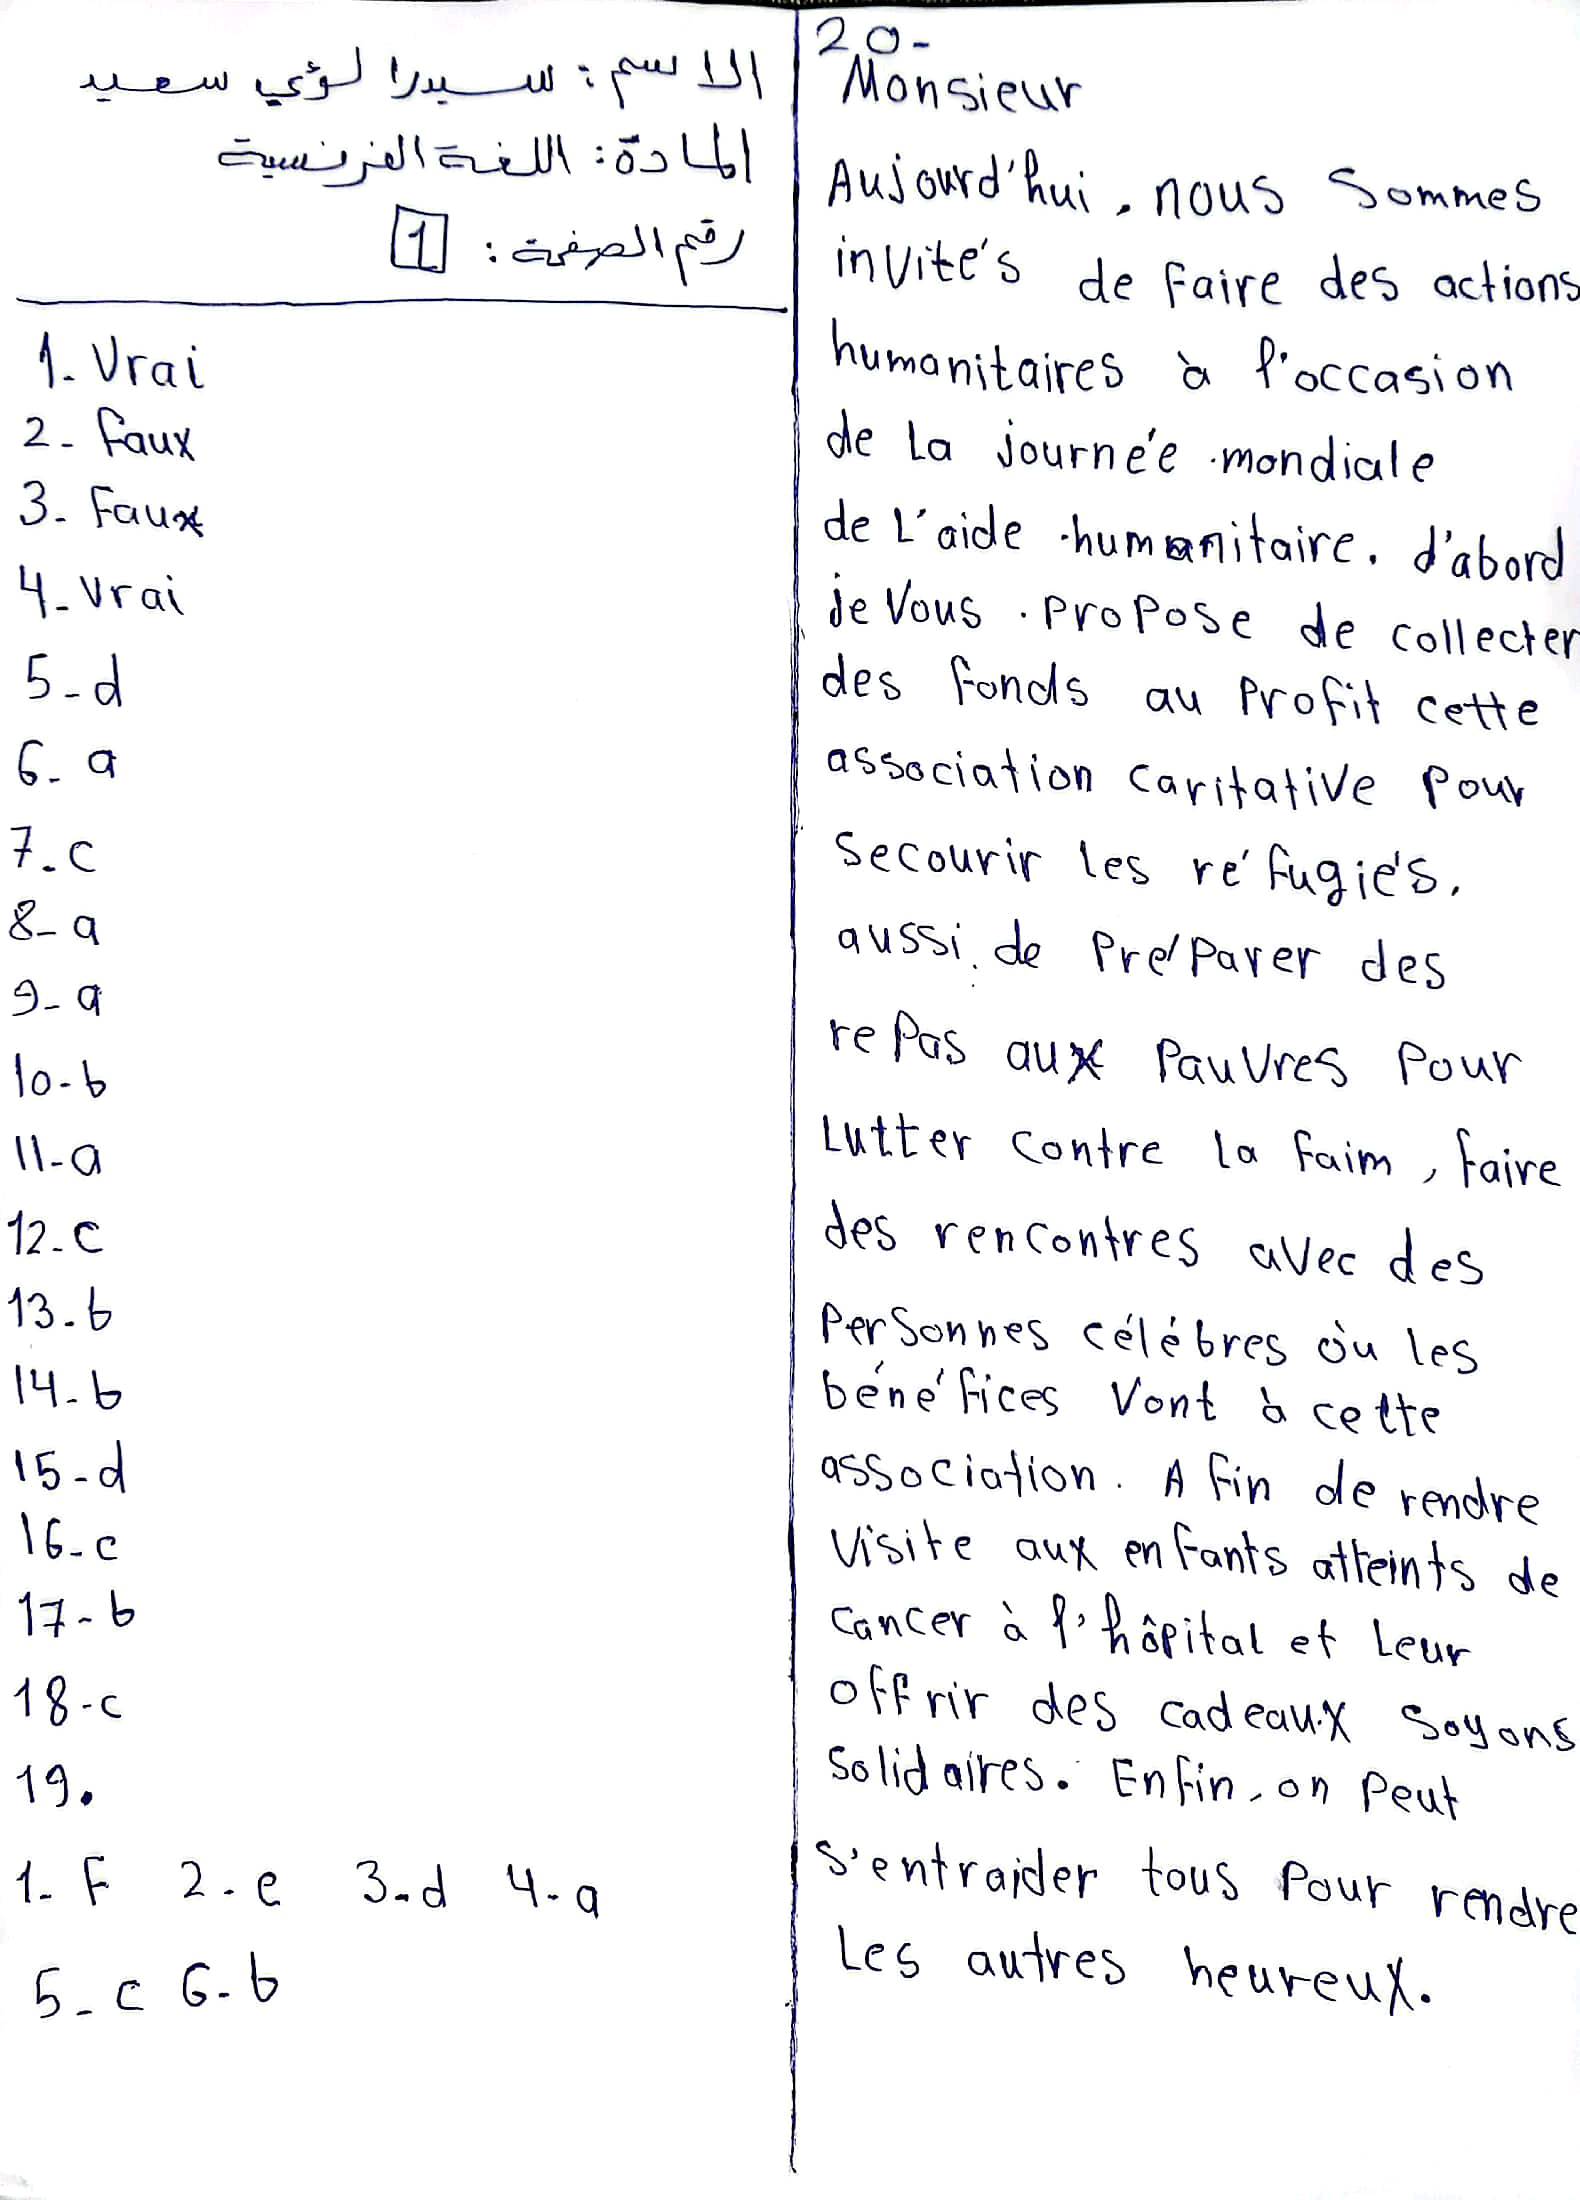 الاسم: سيدرا لؤي سعيد
المادة: اللغة الفرنسية
رقم الصفحة: 1
1. Vrai
2- faux
3- Faux
4- Vrai
5-d
6- a
7. c
8- a
9- a
10-b
11-a
12-c
13-b
14-b
15-d
16-c
17-b
18-c
19.
1- F 2-e 3-d 4-a
5-c 6-b
20-
Monsieur
Aujourd'hui, nous sommes
invités de faire des actions
humanitaires à l'occasion
de la journée mondiale
de l'aide humanitaire. d'abord
je vous propose de collecter
des fonds au profit cette
association caritative pour
secourir les réfugiés.
aussi, de préparer des
repas aux pauvres pour
lutter contre la faim, faire
des rencontres avec des
personnes célébres où les
bénéfices vont à cette
association. Afin de rendre
visite aux enfants atteints de
cancer à l'hôpital et leur
offrir des cadeaux soyons
solidaires. Enfin, on peut
s'entraider tous pour rendre
les autres heureux.